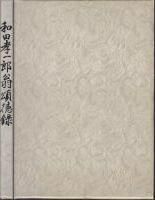 和田孝一郎翁頌徳録